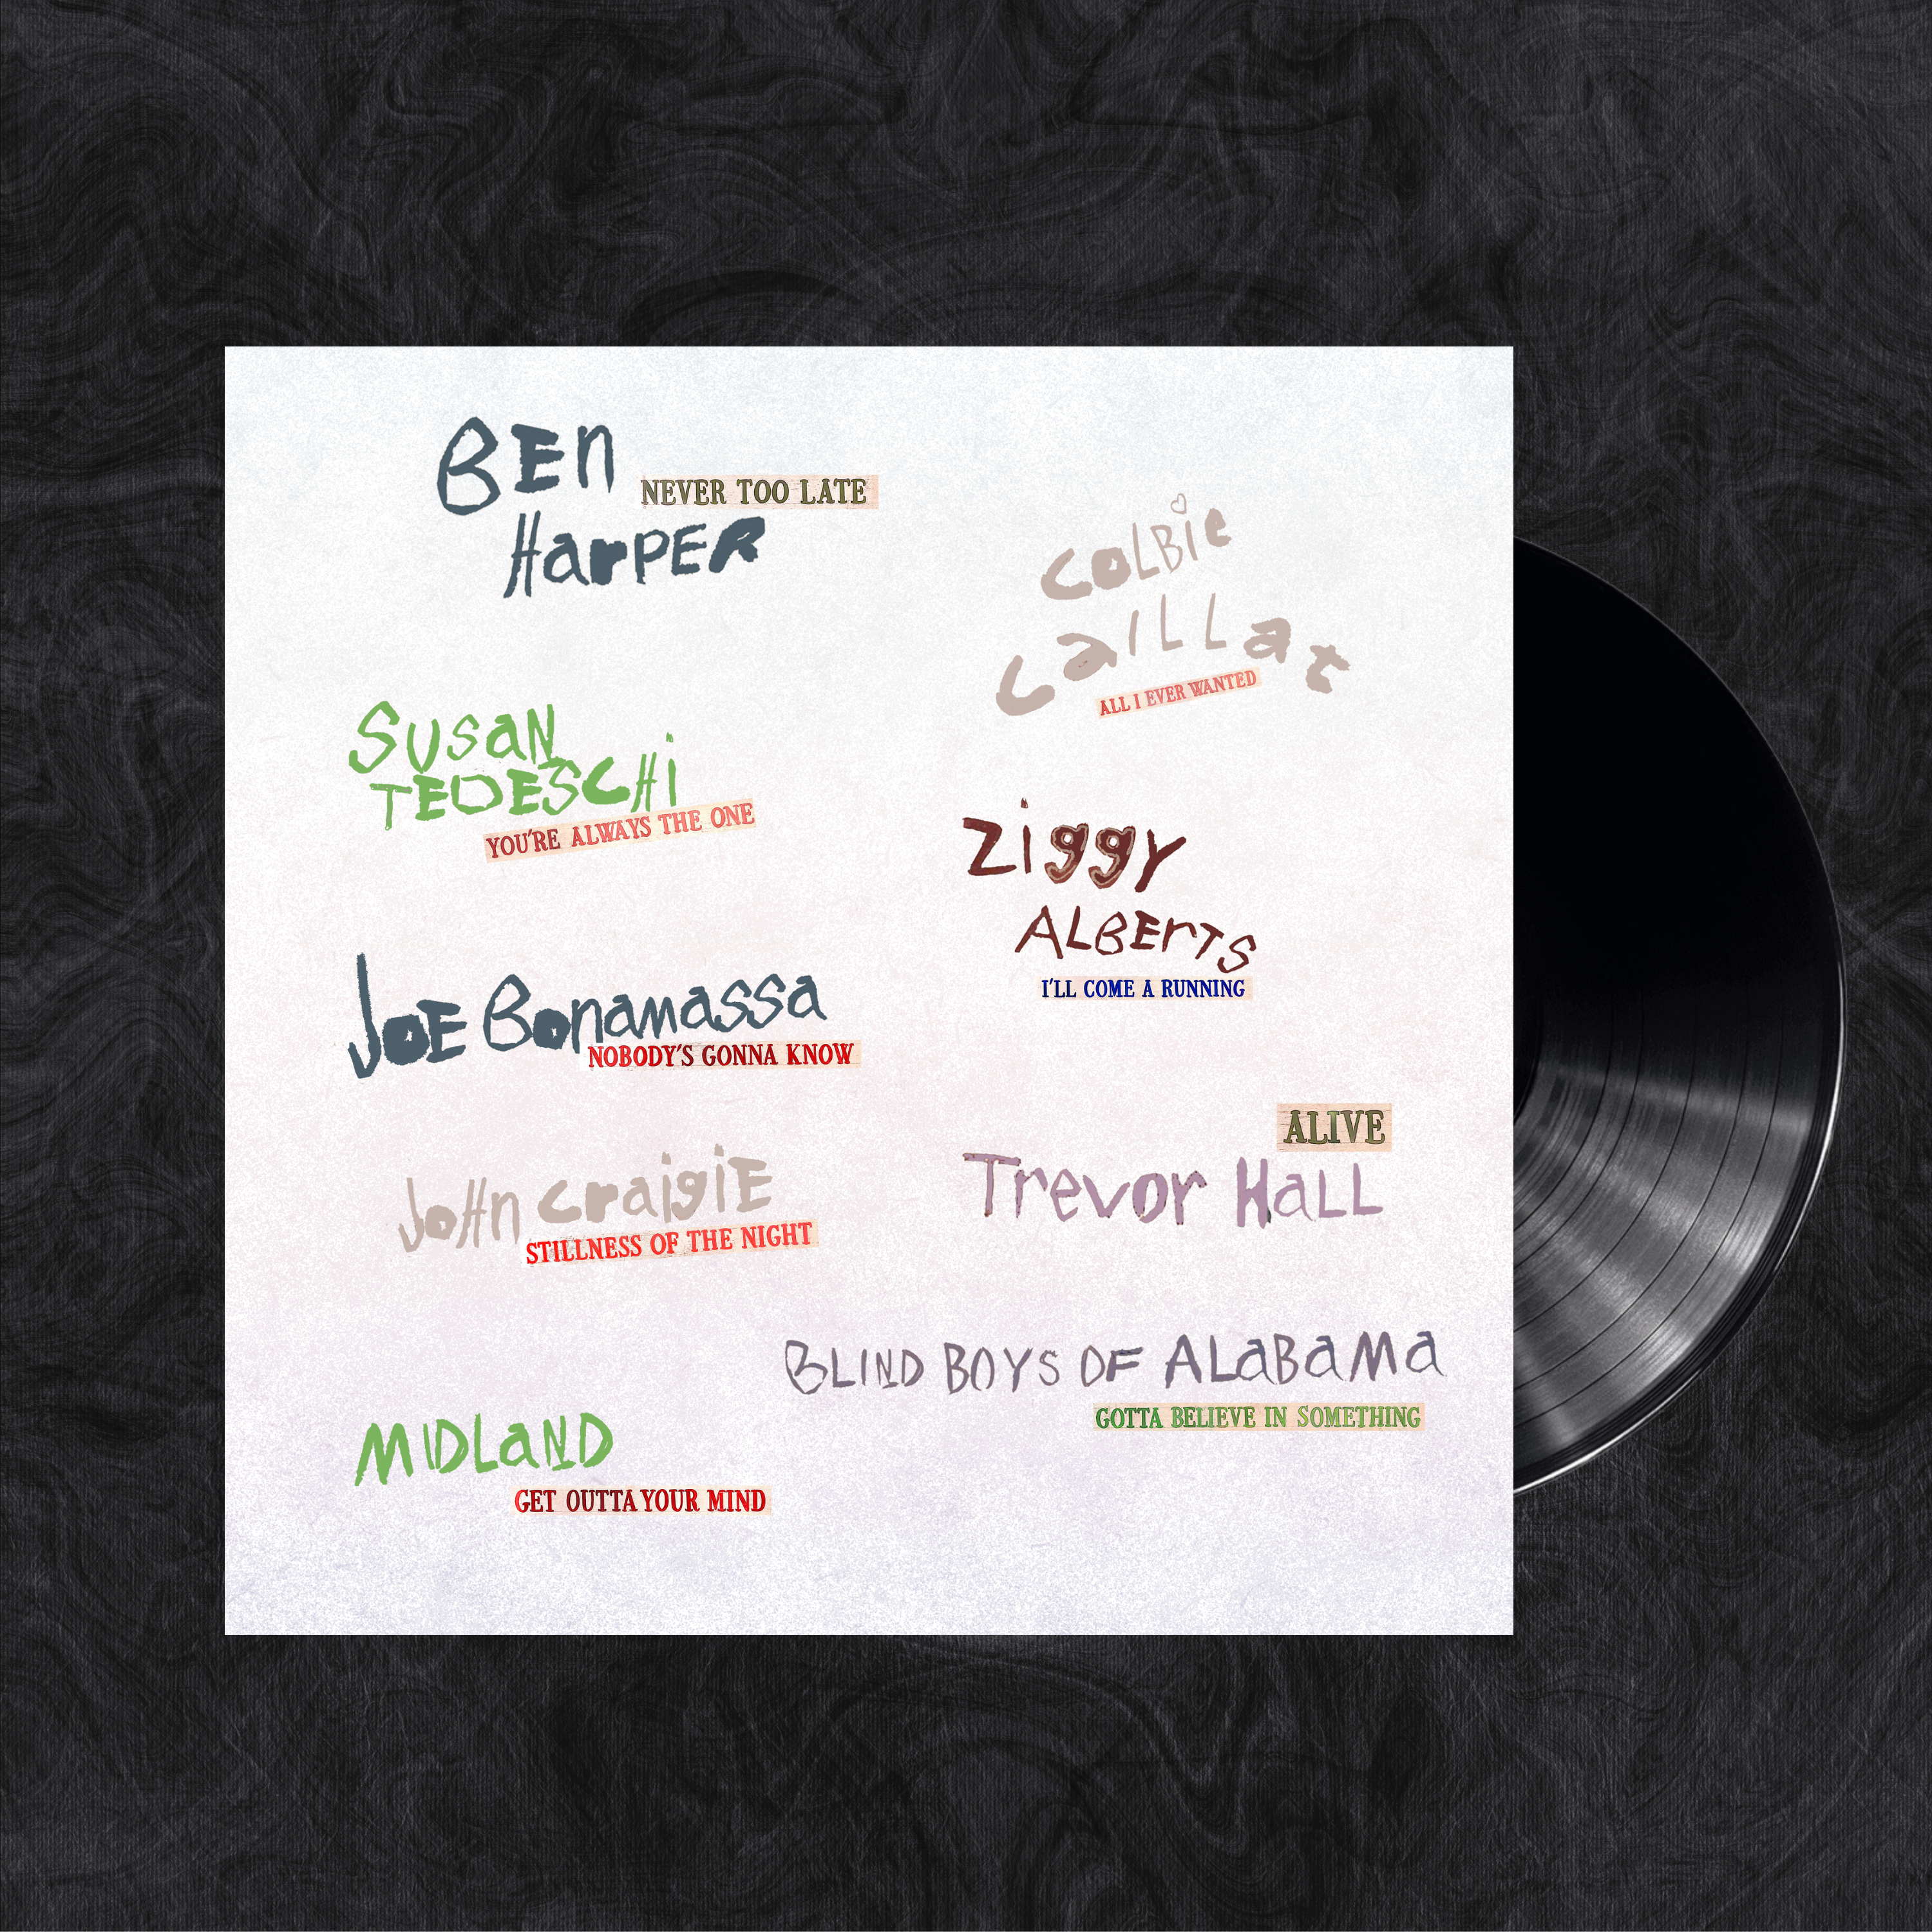 BEn
NEVER TOO LATE
HarPER
COLBie
CaiLLat
ALL I EVER WANTED
SUSaN
TEDESCHi
YOU'RE ALWAYS THE ONE
Ziggy
ALBErTS
I'LL COME A RUNNING
JOE Bonamassa
NOBODY'S GONNA KNOW
ALIVE
Trevor HaLL
JoHn CraigiE
STILLNESS OF THE NIGHT
BLIND BOYS OF ALaBaMa
GOTTA BELIEVE IN SOMETHING
MIDLaND
GET OUTTA YOUR MIND